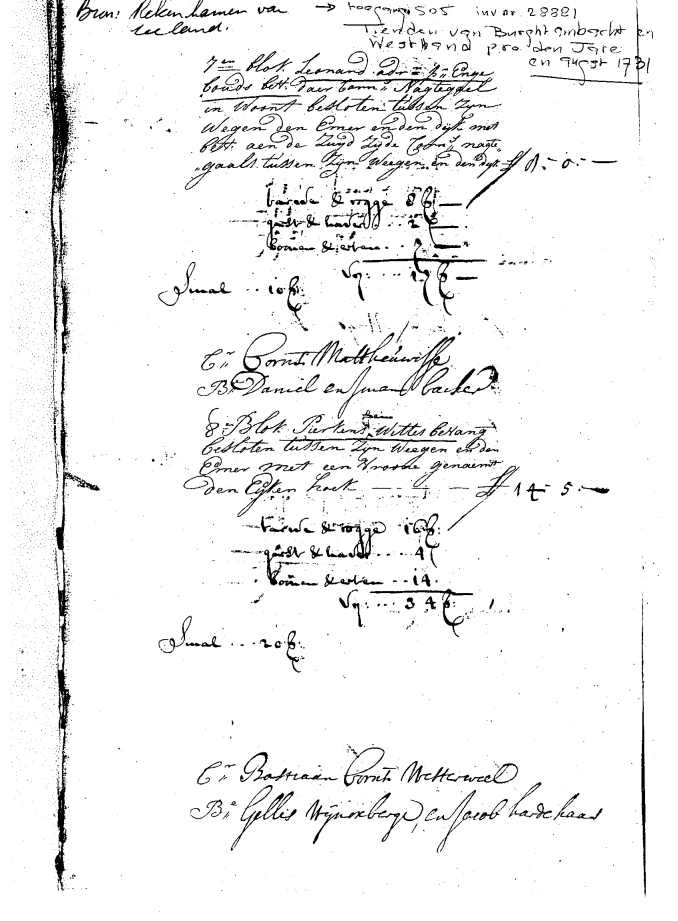 Bron: Rekenkamer van Zeeland. → toegang 505 invnr 28881
Tienden van Burght ambacht en
Westland pro den Jare
en august 1731
7en blok Leonard adr
bouds bet. daer Corn: Nagtegael
in Woont besloten tussen Zyn
Wegen den Emer en den dyk met
bet. aen de Zuyd Zyde Corn: nagte
gaals tussen Zyn Weegen en den dyk
tarwe & rogge 8
garst & haver .. 2
boonen & erten ..
17
Smal .. 10
Cr. Cornts Mattheuwisse
Bn Daniel en backer
8en Blok Pierkens Wittes behang
besloten tussen Zyn Weegen en den
Emer met een Vroone genaemt
den Eyken hoek — — — 14 - 5 -
tarwe & rogge 16
garst & haver .... 4
boonen & erten .. 14
... 34
Smal ... 20
Cr. Bastiaan Cornts Westerweel
Bn Gellis Wynoxberge, en Jacob hardehaas